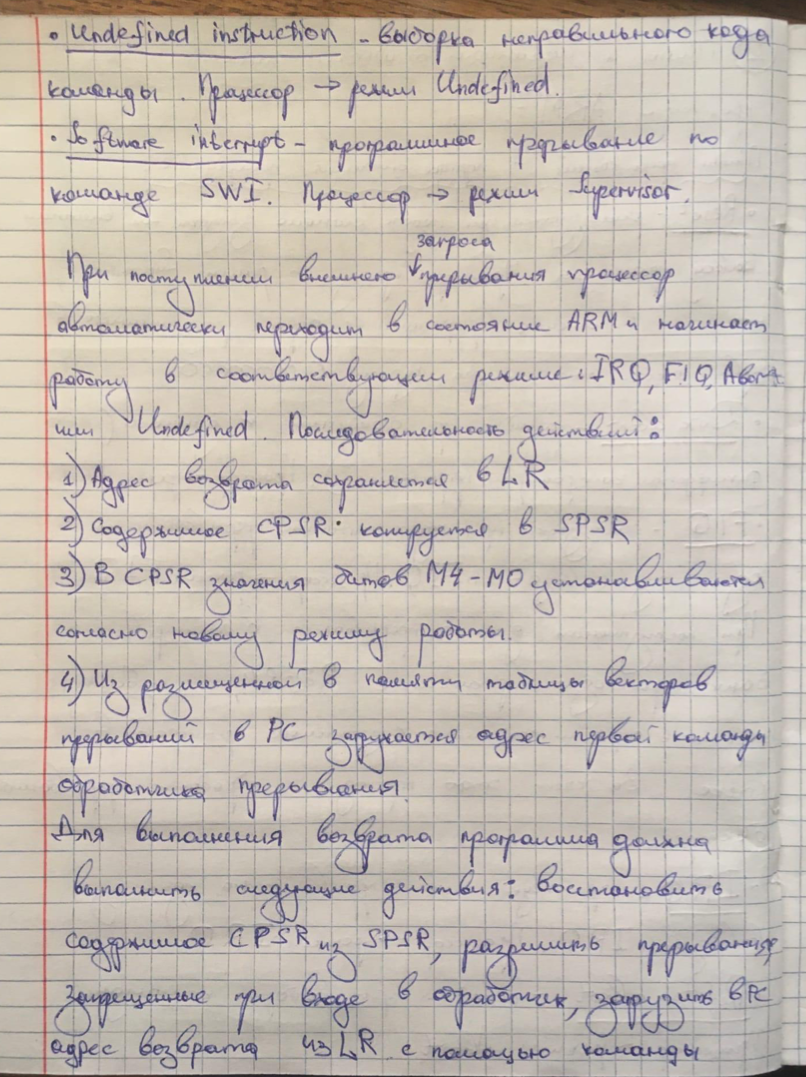 • Undefined instruction – выборка неправильного кода
команды. Процессор → режим Undefined.
• Software interrupt – программное прерывание по
команде SWI. Процессор → режим Supervisor.
запроса
При поступлении внешнего ↓ прерывания процессор
автоматически переходит в состояние ARM и начинает
работу в соответствующем режиме: IRQ, FIQ, Abort
или Undefined. Последовательность действий:
1) Адрес возврата сохраняется в LR
2) Содержимое CPSR копируется в SPSR
3) В CPSR значения битов M4-M0 устанавливаются
согласно новому режиму работы.
4) Из размещенной в памяти таблицы векторов
прерываний в PC загружается адрес первой команды
обработчика прерывания.
Для выполнения возврата программа должна
выполнить следующие действия: восстановить
содержимое CPSR из SPSR, разрешить прерывания,
запрещенные при входе в обработчик, загрузить в PC
адрес возврата из LR с помощью команды